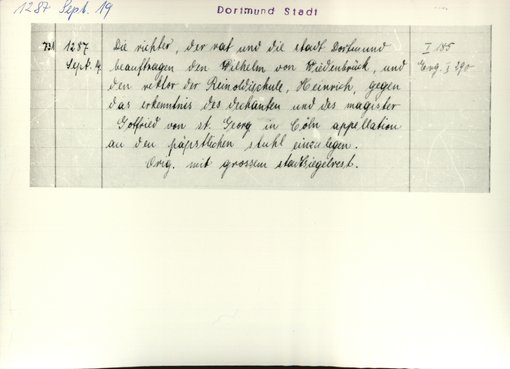 1287 Sept. 19
Dortmund Stadt
73a 1287 Die richter, der rat und die stadt Dortmund I 185
Sept. 19. beauftragen den Wilhelm von Wiedenbrück, und Erg. I 390
den rektor der Reinoldischule, Heinrich, gegen
das erkenntnis des dechanten und des magister
Gottfried von st. Georg in Cöln appellation
an den päpstlichen stuhl einzulegen.
Orig. mit grossem stadtsiegelrest.